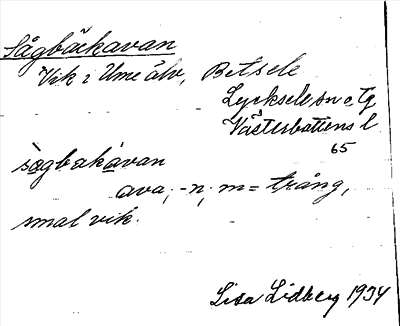 Sågbäckavan
Vik i Ume älv, Betsele
Lycksele sn o tg
Västerbottens l
65
sògbakàvan
ava, -n, m = trång,
smal vik.
Lisa Lidberg 1934